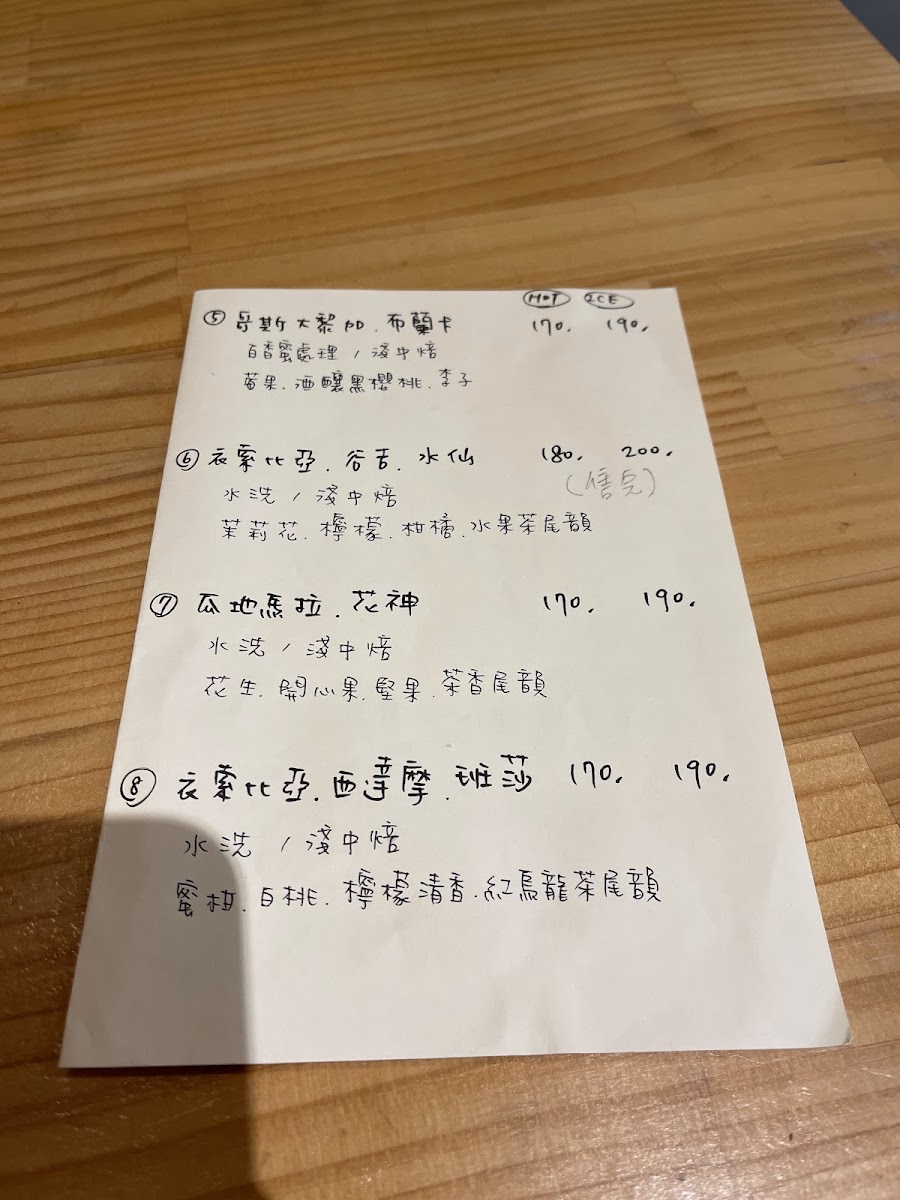 HOT ICE
⑤ 哥斯大黎加.布蘭卡 170. 190.
百香蜜處理 / 淺中焙
莓果.酒釀黑櫻桃.李子
⑥ 衣索比亞.谷吉.水仙 180. 200.
(售完)
水洗 / 淺中焙
茉莉花.檸檬.柑橘.水果茶尾韻
⑦ 瓜地馬拉.花神 170. 190.
水洗 / 淺中焙
花生.開心果.堅果.茶香尾韻
⑧ 衣索比亞.西達摩.班莎 170. 190.
水洗 / 淺中焙
蜜柑.白桃.檸檬清香.紅烏龍茶尾韻